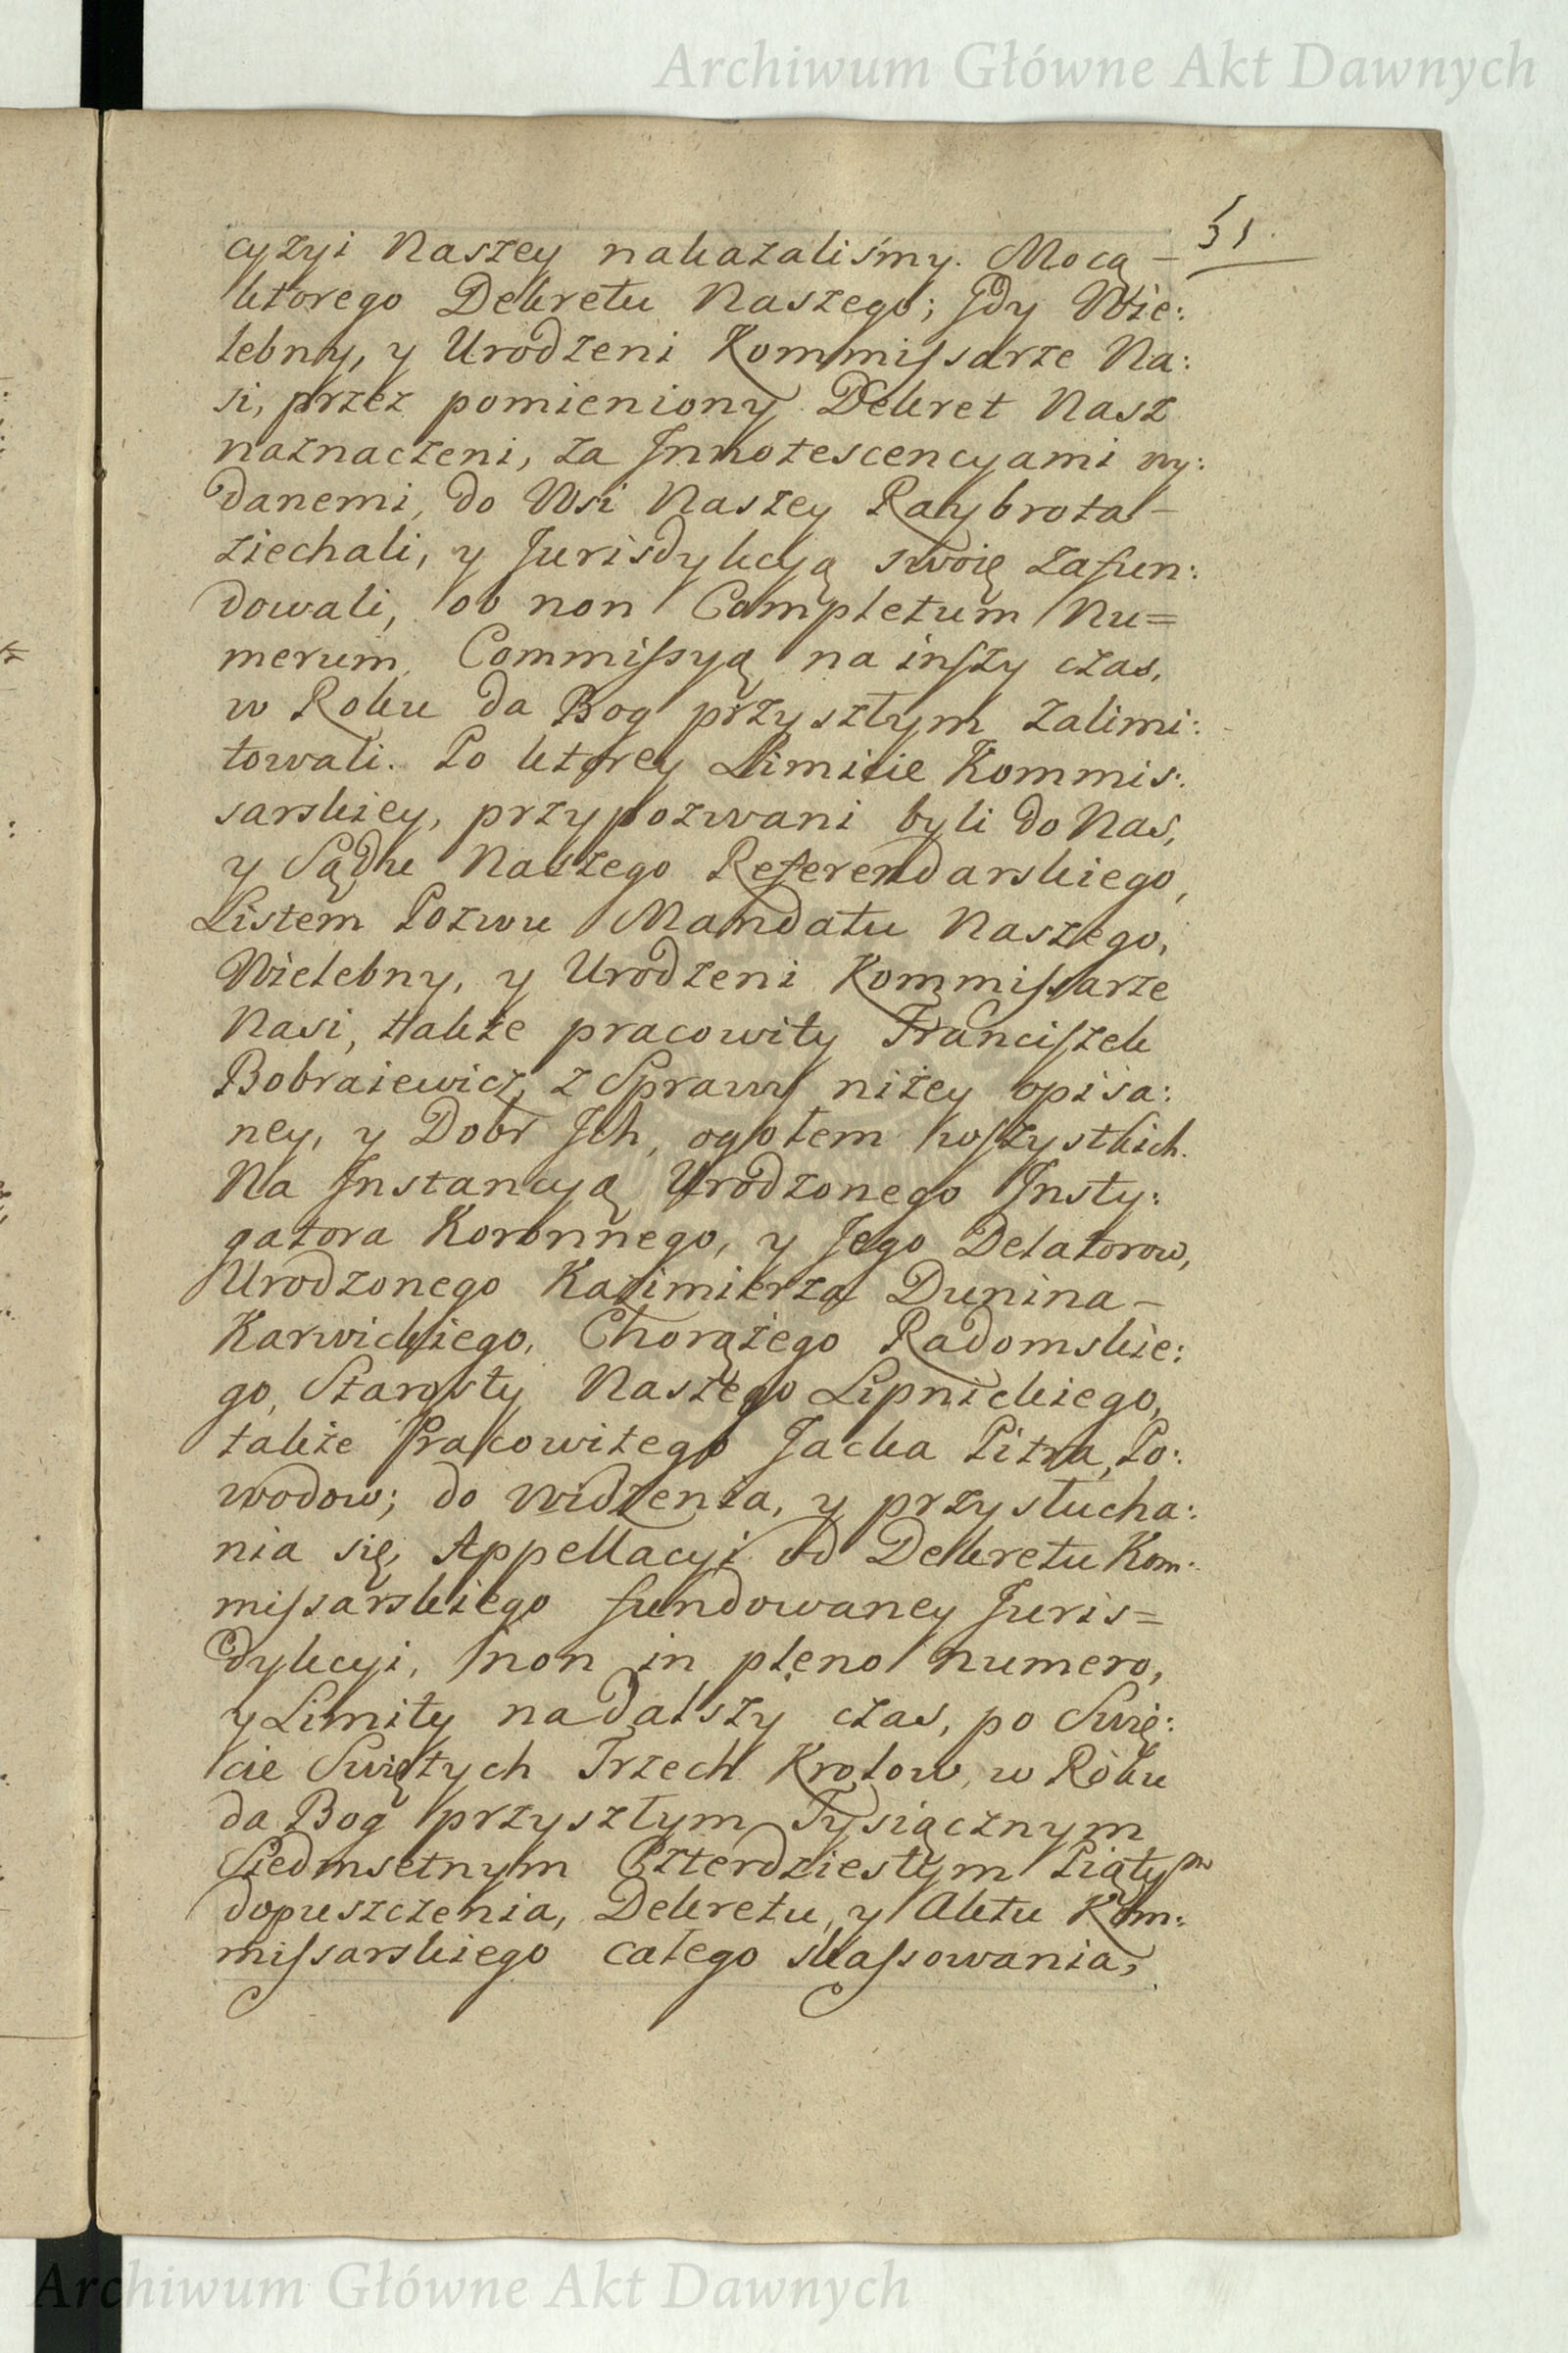 Archiwum Główne Akt Dawnych
51.
cyzyi Naszey nakazaliśmy. Mocą –
ktorego Dekretu Naszego; gdy Wie:
lebny, y Urodzeni Kommissarze Na:
si, przez pomieniony Dekret Nasz
naznaczeni, za Innotescencyami wy:
danemi, do Wsi Naszey Raybrota –
ziechali, y Jurisdykcyą swoię zafun:
dowali, ob non Completum Nu=
merum, Commissyą na inszy czas,
w Roku da Bog przyszłym zalimi:
towali. Po ktorey Limicie Kommis:
sarskiey, przypozwani byli do Nas,
y Sądu Naszego Referendarskiego,
Listem Pozwu Mandatu Naszego,
Wielebny, y Urodzeni Kommissarze
Nasi, także pracowity Franciszek
Bobraiewicz, z Spraw niżey opisa:
ney, y Dobr Ich, ogołem wszystkich.
Na Instancyą Urodzonego Insty:
gatora Koronnego, y Jego Delatorow,
Urodzonego Kazimierza Dunina –
Karwickiego, Chorążego Radomskie:
go, Starosty Naszego Lipnickiego,
także Pracowitego Jacka Pitra, Po:
wodow; do widzenia, y przysłucha:
nia się, Appellacyi od Dekretu Kom:
missarskiego fundowaney Juris=
dykcyi, non in pleno numero,
y Limity na dalszy czas, po Swię:
cie Swiętych Trzech Krolow, w Roku
da Bog przyszłym Tysiącznym
Siedmsetnym Czterdziestym Piątym
dopuszczenia, Dekretu, y Aktu Kom:
missarskiego całego skassowania,
Archiwum Główne Akt Dawnych